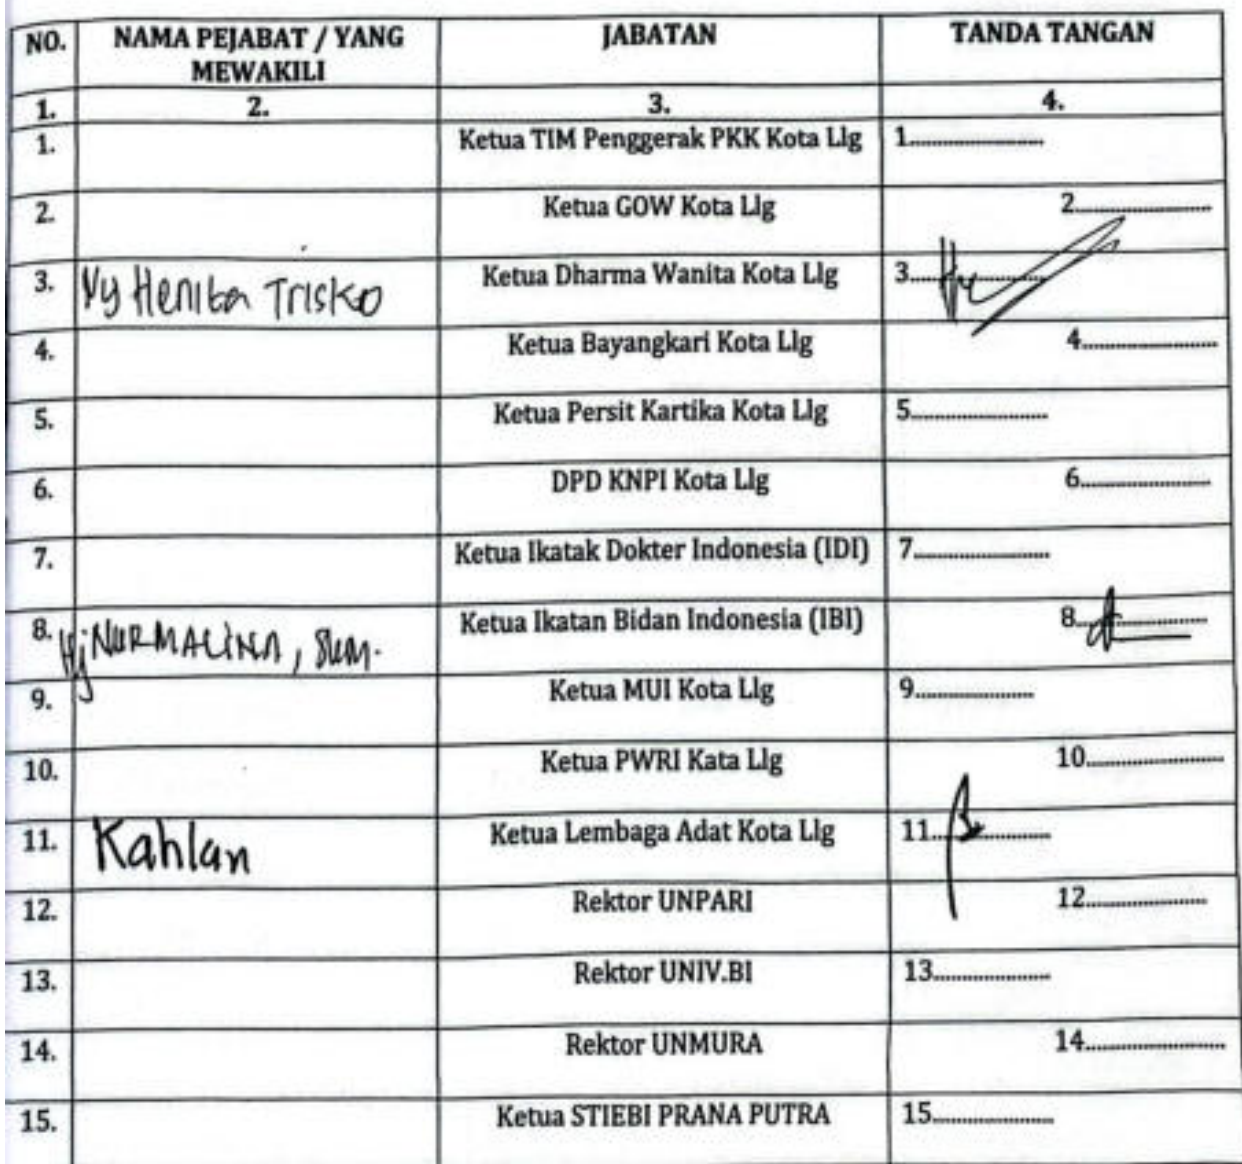 NO. NAMA PEJABAT / YANG MEWAKILI JABATAN TANDA TANGAN
1. 2. 3. 4.
1. Ketua TIM Penggerak PKK Kota Llg 1....................
2. Ketua GOW Kota Llg 2....................
3. Ny Henita Trisko Ketua Dharma Wanita Kota Llg 3....................
4. Ketua Bayangkari Kota Llg 4....................
5. Ketua Persit Kartika Kota Llg 5....................
6. DPD KNPI Kota Llg 6....................
7. Ketua Ikatak Dokter Indonesia (IDI) 7....................
8. Hj NURMALINA, SKM. Ketua Ikatan Bidan Indonesia (IBI) 8....................
9. Ketua MUI Kota Llg 9....................
10. Ketua PWRI Kata Llg 10....................
11. Kahlan Ketua Lembaga Adat Kota Llg 11....................
12. Rektor UNPARI 12....................
13. Rektor UNIV.BI 13....................
14. Rektor UNMURA 14....................
15. Ketua STIEBI PRANA PUTRA 15....................